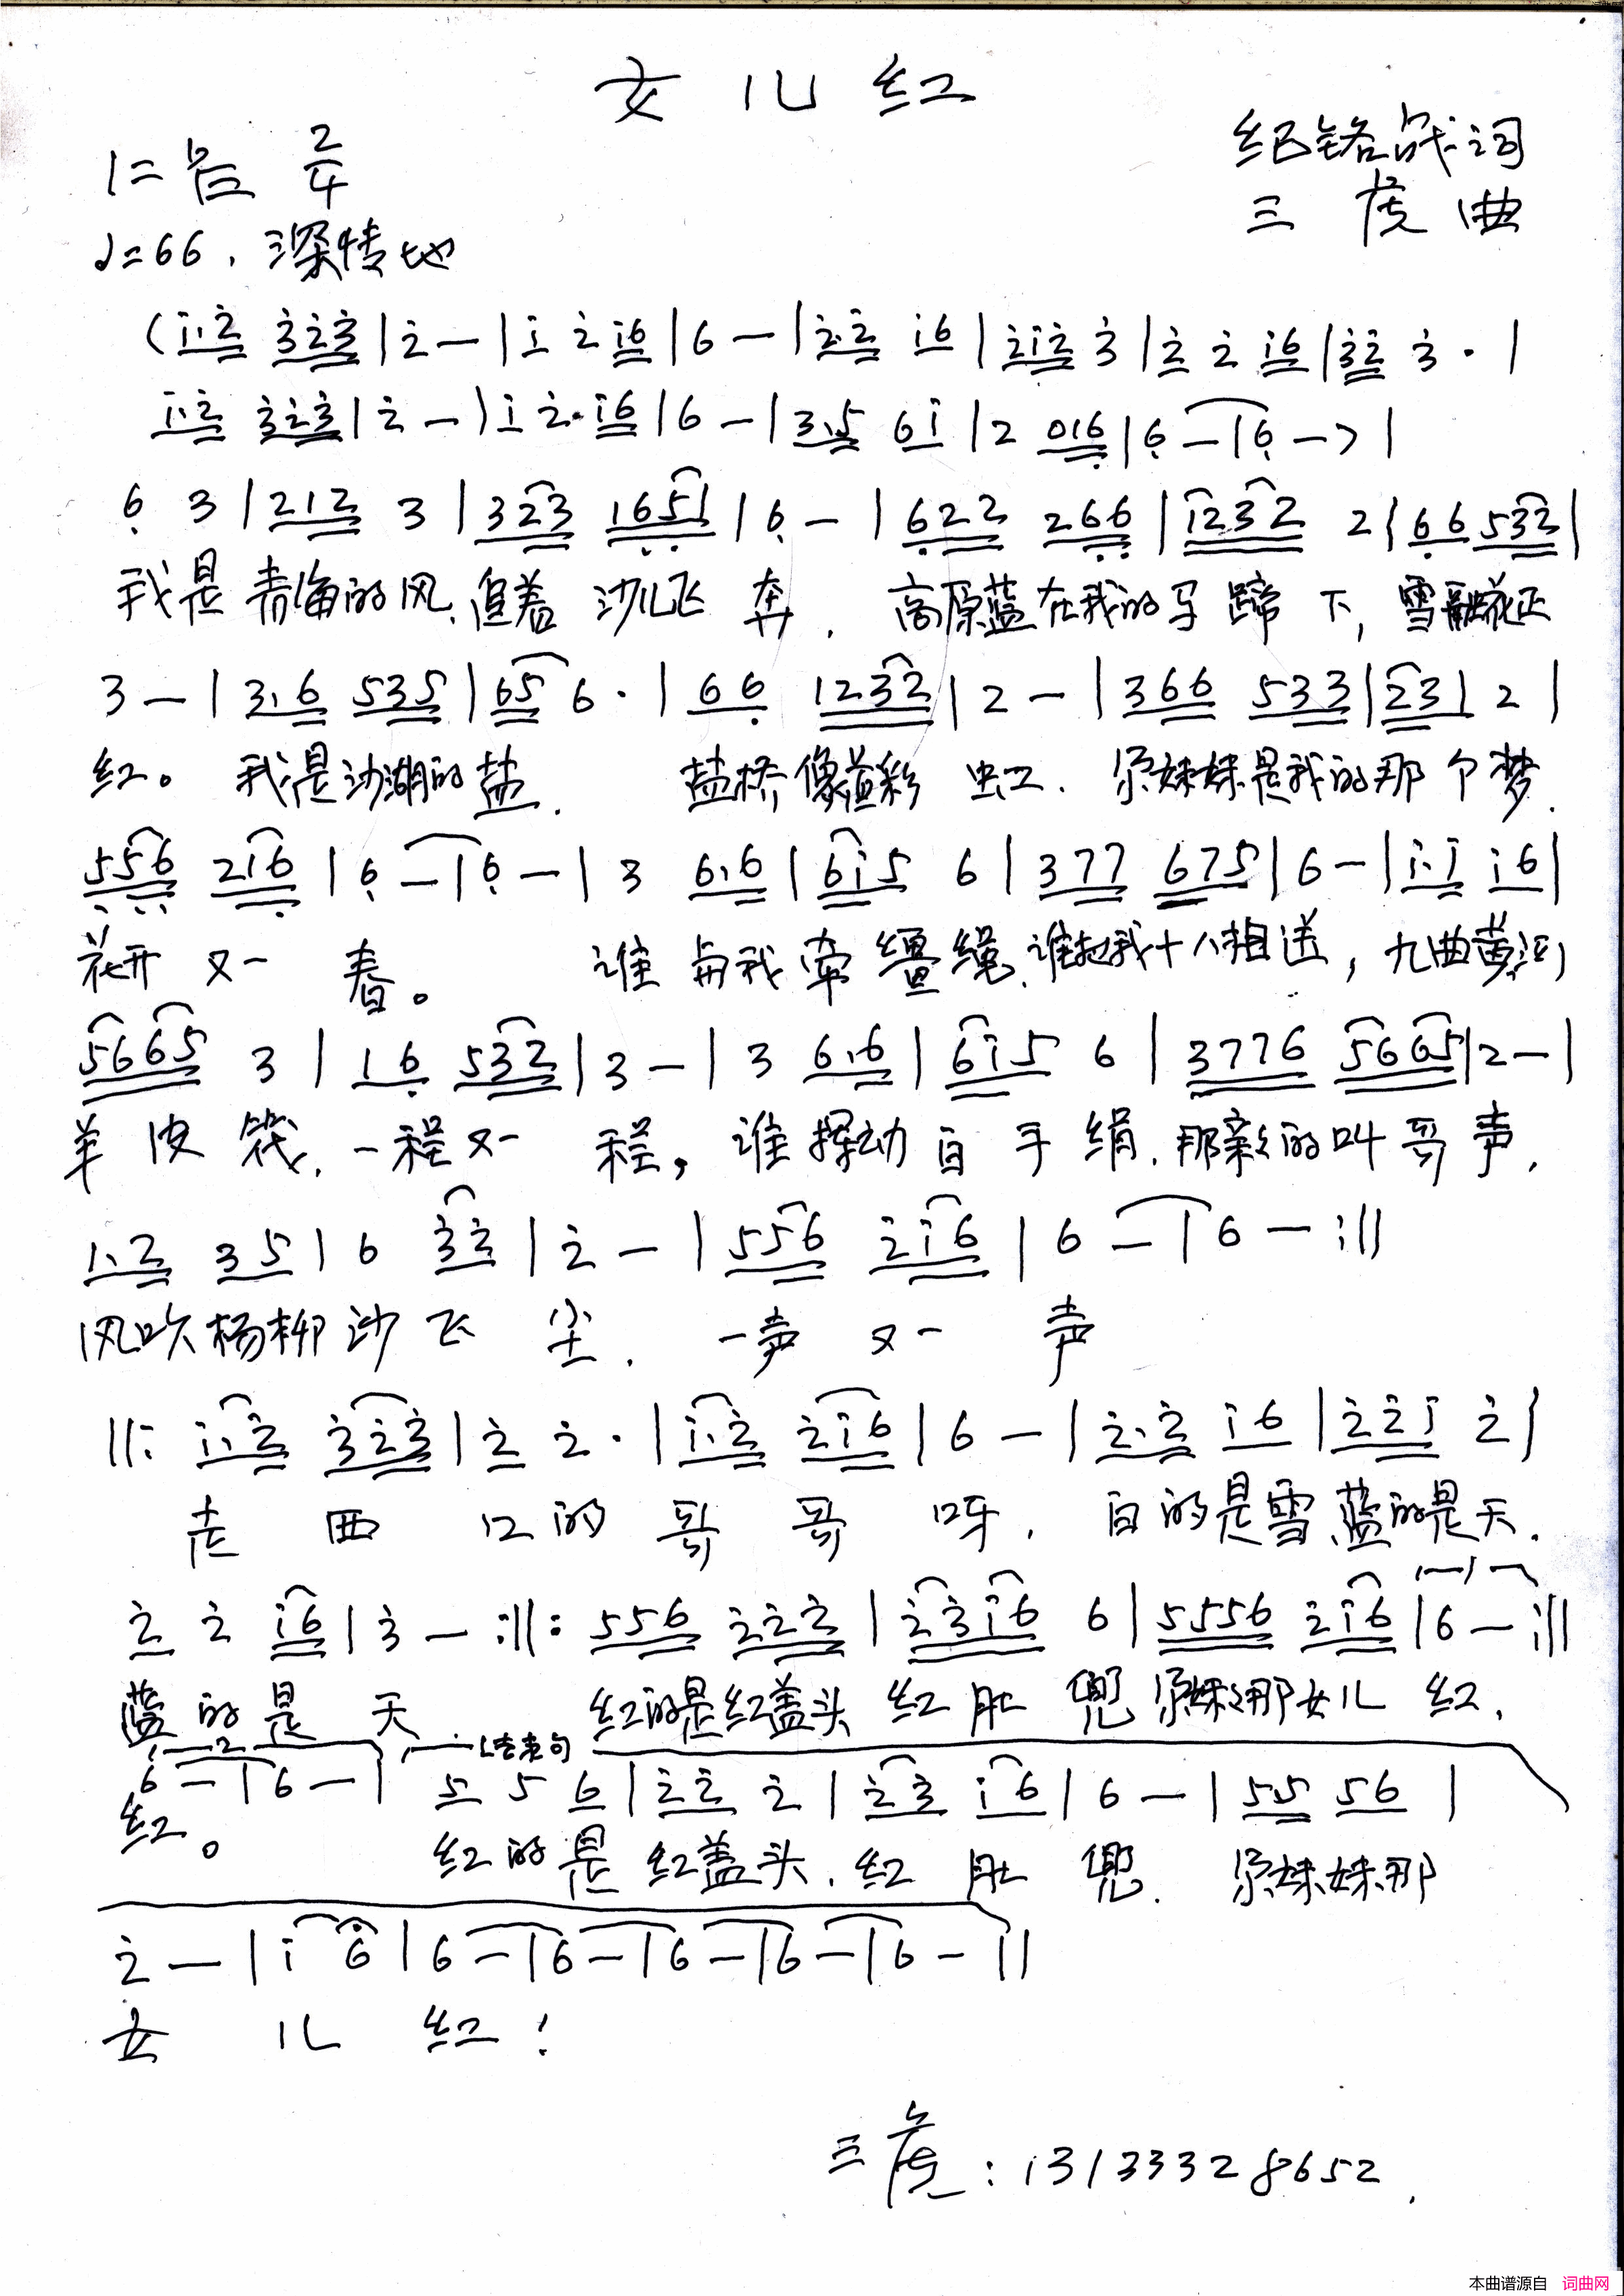 女儿红
1=B 2/4
纪铭战词
三虎曲
♩=66. 深情地
(i·2̇ 3̇2̇3̇|2̇ —|i 2̇ i6|6 —|2̇·2̇ i6|2̇i2̇ 3̇|2̇ 2̇ i6|3̇2̇ 3̇·|
i·2̇ 3̇2̇3̇|2̇ —|i 2̇·i6|6 —|3·5 6i|2 016|6 —|6 —)|
6 3|212 3|323 1651|6 —|622 266|1232 2|66 532|
我是青海的风,追着沙儿飞奔. 高原蓝在我的马蹄下,雪融花正
3 —|3·6 535|65 6·|66 1232|2 —|366 533|231 2|
红。我是沙湖的盐. 盐桥像道彩虹. 尕妹妹是我的那个梦.
556 216|6 —|6 —|3 6·6|6i5 6|377 675|6 —|i·i i6|
花开又一春。谁与我牵缰绳.谁赶我十八相送,九曲黄河
5665 3|16 532|3 —|3 6·6|6i5 6|3776 5665|2 —|
羊皮筏.一程又一程,谁挥动白手绢.那亲亲的叫哥声.
1·2 35|6 3̇2̇|2̇ —|556 2̇i6|6 —|6 — :||
风吹杨柳沙飞尘. 一声又一声
||: i·2̇ 3̇2̇3̇|2̇ 2̇·|i·2̇ 2̇i6|6 —|2̇·2̇ i6|2̇2̇i 2̇|
走西口的哥哥呀. 白的是雪蓝的是天.
2̇ 2̇ i6|3̇ — :||: 556 2̇2̇2̇|2̇3̇i6 6|5556 2̇i6|6 — :||
蓝的是天 红的是红盖头红肚兜尕妹妹那女儿红.
结束句
6 —|6 —| 5 5 6|2̇2̇ 2̇|2̇3̇ i6|6 —|55 56|
红。 红的是红盖头.红肚兜. 尕妹妹那
2̇ —|i 6|6 —|6 —|6 —|6 —|6 —||
女儿红!
三虎:13133328652.
本曲谱源自 词曲网